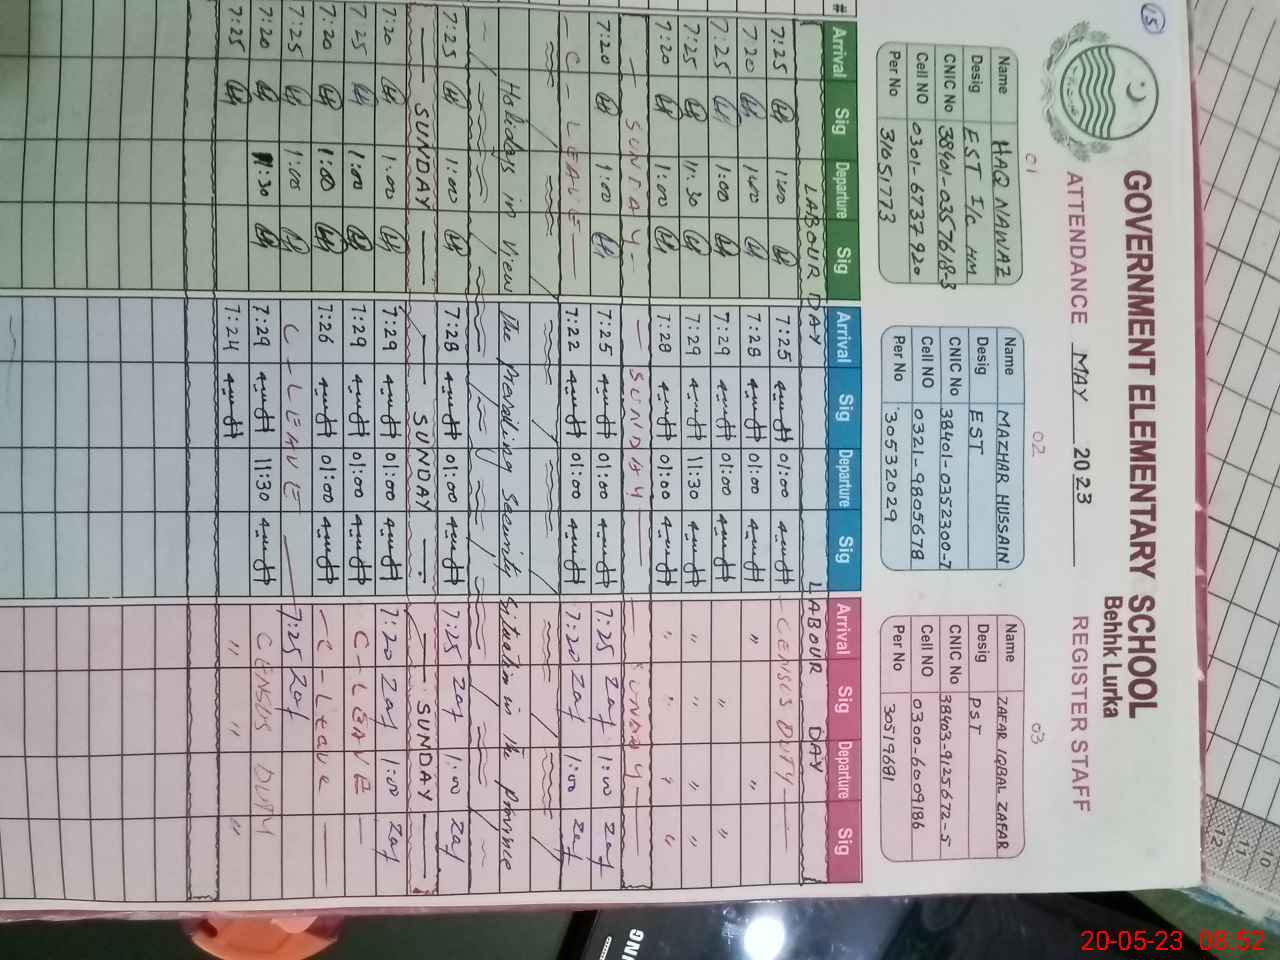 15
GOVERNMENT ELEMENTARY SCHOOL
Behhk Lurka
ATTENDANCE MAY 2023 REGISTER STAFF
01 02 03
Name HAQ NAWAZ Name MAZHAR HUSSAIN Name ZAFAR IQBAL ZAFAR
Desig EST I/c HM Desig EST Desig PST
CNIC No 38401-0357618-3 CNIC No 38401-0352300-7 CNIC No 38403-9125672-5
Cell NO 0301-6737920 Cell NO 0321-9805678 Cell NO 0300-6009186
Per No 31051773 Per No 30532029 Per No 30519681
# Arrival Sig Departure Sig Arrival Sig Departure Sig Arrival Sig Departure Sig
LABOUR DAY LABOUR DAY
7:25 1:00 7:25 01:00 — CENSUS DUTY —
7 20 1:00 7:28 01:00 " "
7:25 1:00 7:29 01:00 " "
7:25 11:30 7:29 11:30 " " "
7:20 1:00 7:28 01:00 " " " "
— SUNDAY — — SUNDAY — — SUNDAY —
7:20 1:00 7:25 01:00 7:25 Zaf 1:00 Zaf
— C-LEAVE — 7:22 01:00 7:20 Zaf 1:00 Zaf
Holidays in view the Prevailing Security situation in the province
7:25 1:00 7:28 01:00 7:25 Zaf 1:00 Zaf
— SUNDAY — — SUNDAY — — SUNDAY —
7:20 1:00 7:29 01:00 7:20 Zaf 1:00 Zaf
7:25 1:00 7:29 01:00 C-LEAVE —
7:20 1:00 7:26 01:00 — C-Leave —
7:25 1:00 C-LEAVE — 7:25 Zaf
7:20 11:30 7:29 11:30 CENSUS DUTY
7:25 7:24 " " "
10
11
12
20-05-23 08:52